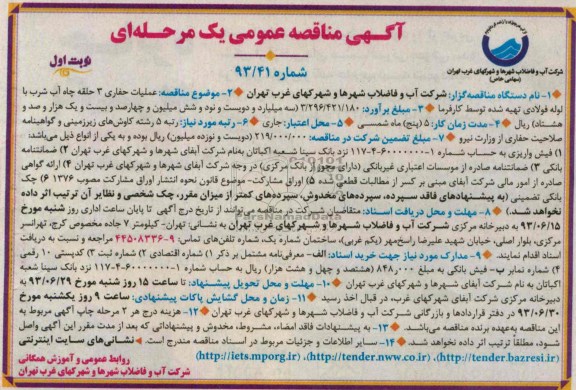 آگهی مناقصه عمومی یک مرحله‌ای
شماره ۹۳/۴۱
نوبت اول
شرکت آب و فاضلاب شهرها و شهرکهای غرب تهران
(سهامی خاص)
۱- نام دستگاه مناقصه‌گزار: شرکت آب و فاضلاب شهرها و شهرکهای غرب تهران ۲- موضوع مناقصه: عملیات حفاری ۳ حلقه چاه آب شرب با
لوله فولادی تهیه شده توسط کارفرما ۳- مبلغ برآورد: ۳/۲۹۶/۴۲۱/۱۸۰ (سه میلیارد و دویست و نود و شش میلیون و چهارصد و بیست و یک هزار و صد و
هشتاد) ریال ۴- مدت زمان کار: ۵ (پنج) ماه شمسی ۵- محل اعتبار: جاری ۶- رتبه مورد نیاز: رتبه ۵ رشته کاوش‌های زیرزمینی و گواهینامه
صلاحیت حفاری از وزارت نیرو ۷- مبلغ تضمین شرکت در مناقصه: ۲۱۹/۰۰۰/۰۰۰ (دویست و نوزده میلیون) ریال بوده و به یکی از انواع ذیل می‌باشد:
۱) فیش واریزی به حساب شماره ۱-۶۰۰۰۰۰۰-۴-۱۱۷ نزد بانک سینا شعبه اکباتان به‌نام شرکت آبفای شهرها و شهرکهای غرب تهران ۲) ضمانتنامه
بانکی ۳) ضمانتنامه صادره از موسسات اعتباری غیربانکی (دارای مجوز از بانک مرکزی) در وجه شرکت آبفای شهرها و شهرکهای غرب تهران ۴) ارائه گواهی
صادره از امور مالی شرکت آبفای مبنی بر کسر از مطالبات قطعی شده ۵) اوراق مشارکت- موضوع قانون نحوه انتشار اوراق مشارکت مصوب ۱۳۷۶ ۶) چک
بانکی تضمینی (به پیشنهادهای فاقد سپرده، سپرده‌های مخدوش، سپرده‌های کمتر از میزان مقرر، چک شخصی و نظایر آن ترتیب اثر داده
نخواهد شد.) ۸- مهلت و محل دریافت اسناد: متقاضیان شرکت در مناقصه می‌توانند از تاریخ درج آگهی تا پایان ساعت اداری روز شنبه مورخ
۹۳/۰۶/۱۵ به دبیرخانه مرکزی شرکت آب و فاضلاب شهرها و شهرکهای غرب تهران به نشانی: تهران- کیلومتر ۷ جاده مخصوص کرج، تهرانسر
مرکزی، بلوار اصلی، خیابان شهید علیرضا راسخ‌مهر (یکم غربی)، ساختمان شماره یک، شماره تلفن‌های تماس: ۹-۴۴۵۰۸۳۳۶ مراجعه و نسبت به دریافت
اسناد اقدام نمایند. ۹- مدارک مورد نیاز جهت خرید اسناد: الف- معرفی‌نامه مشتمل بر ذکر ۱) شماره اقتصادی ۲) شماره ثبت ۳) کدپستی ۱۰ رقمی
۴) شماره نمابر ب- فیش بانکی به مبلغ ۸۴۸/۰۰۰ (هشتصد و چهل و هشت هزار) ریال به حساب شماره ۱-۶۰۰۰۰۰۰-۴-۱۱۷ نزد بانک سینا شعبه
اکباتان به نام شرکت آبفای شهرها و شهرکهای غرب تهران ۱۰- مهلت و محل تحویل پیشنهاد: تا ساعت ۱۵ روز شنبه مورخ ۹۳/۰۶/۲۹ به
دبیرخانه مرکزی شرکت آبفای شهرکهای غرب، در قبال اخذ رسید ۱۱- زمان و محل گشایش پاکات پیشنهادی: ساعت ۹ روز یکشنبه مورخ
۹۳/۰۶/۳۰ در دفتر قراردادها و بازرگانی شرکت آب و فاضلاب شهرها و شهرکهای غرب تهران ۱۲- هزینه درج هر ۲ مرحله چاپ آگهی مربوط به
این مناقصه به‌عهده برنده مناقصه می‌باشد. ۱۳- به پیشنهادات فاقد امضاء، مشروط، مخدوش و پیشنهاداتی که بعد از مدت مقرر این آگهی واصل
شود، مطلقاً ترتیب اثر داده نخواهد شد. ۱۴- سایر اطلاعات و جزئیات مربوط در اسناد مناقصه مندرج است. نشانی‌های سایت اینترنتی
(http://iets.mporg.ir) ،(http://tender.nww.co.ir) ،(http://tender.bazresi.ir)
روابط عمومی و آموزش همگانی
شرکت آب و فاضلاب شهرها و شهرکهای غرب تهران